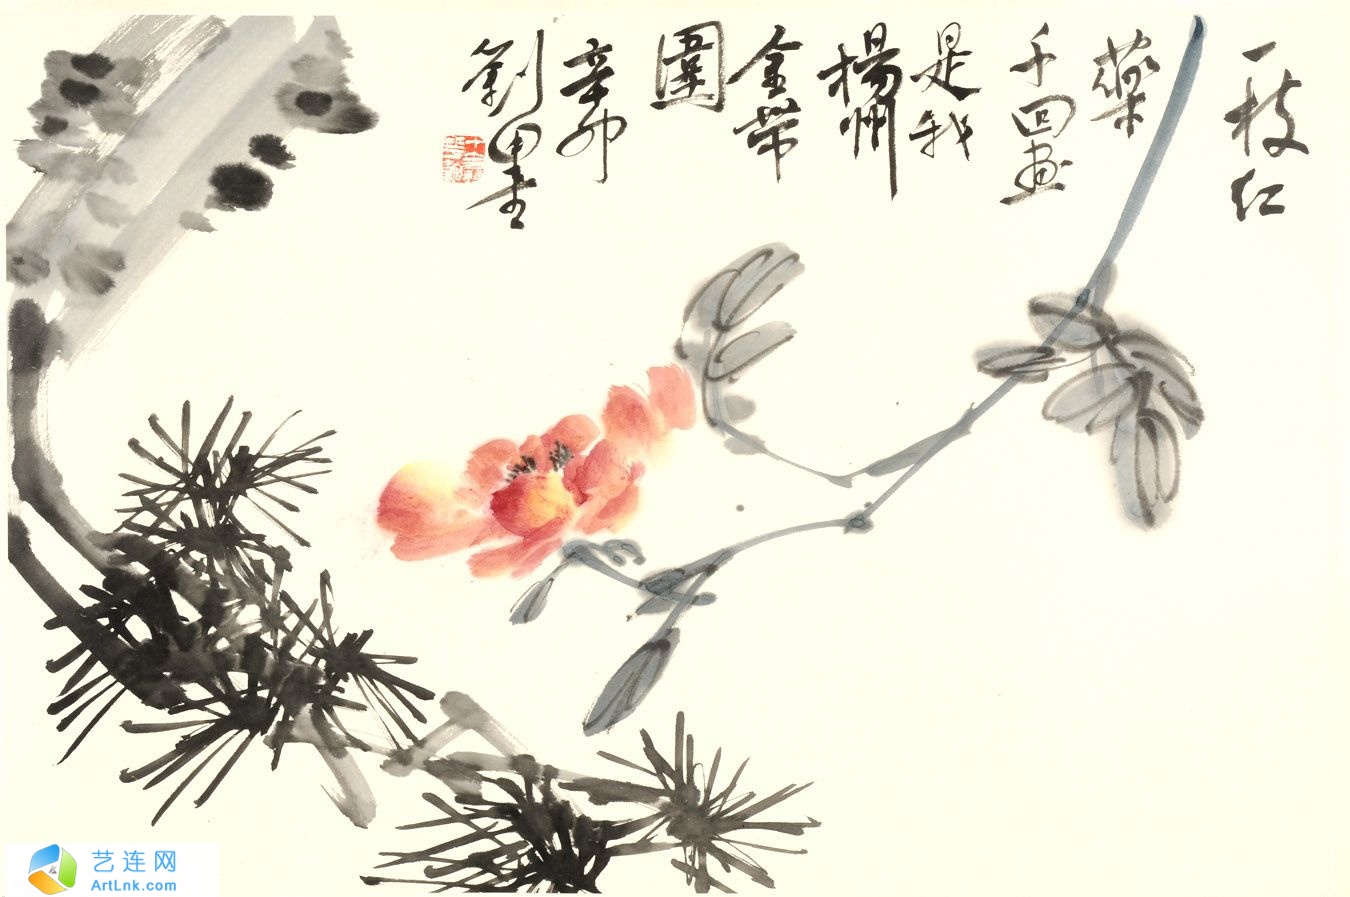 一枝红
药
千回画
是我
楊州
金带
圍
辛卯
劉墨
艺连网
ArtLnk.com